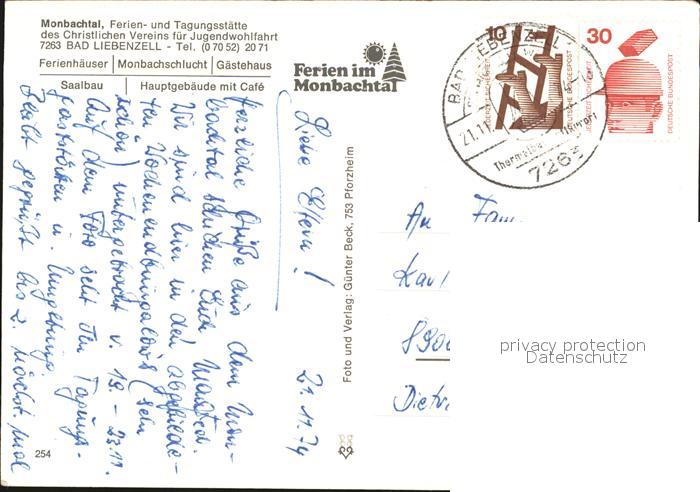 Monbachtal, Ferien- und Tagungsstätte
des Christlichen Vereins für Jugendwohlfahrt
7263 BAD LIEBENZELL - Tel. (0 70 52) 20 71
Ferienhäuser | Monbachschlucht | Gästehaus
Saalbau | Hauptgebäude mit Café
Ferien im
Monbachtal
10
30
JEDERZEIT SICHERHEIT
DEUTSCHE BUNDESPOST
JEDERZEIT SICHERHEIT
DEUTSCHE BUNDESPOST
BAD LIEBENZELL
21.11.
7263
Liebe Eltern!
21.11.74
herzliche Grüße aus dem Mon-
bachtal schicken Euch
Wir sind hier in den
ten Wochenendbungalows (sehr
schön) untergebracht v. 19. - 23.11.
Auf dem Foto seht Ihr Tagungs-
gaststätten u. Umgebung.
Seid gegrüßt bis z. nächst. Mal
Foto und Verlag: Günter Beck, 753 Pforzheim
254
An Fam
Karl
890
privacy protection
Datenschutz